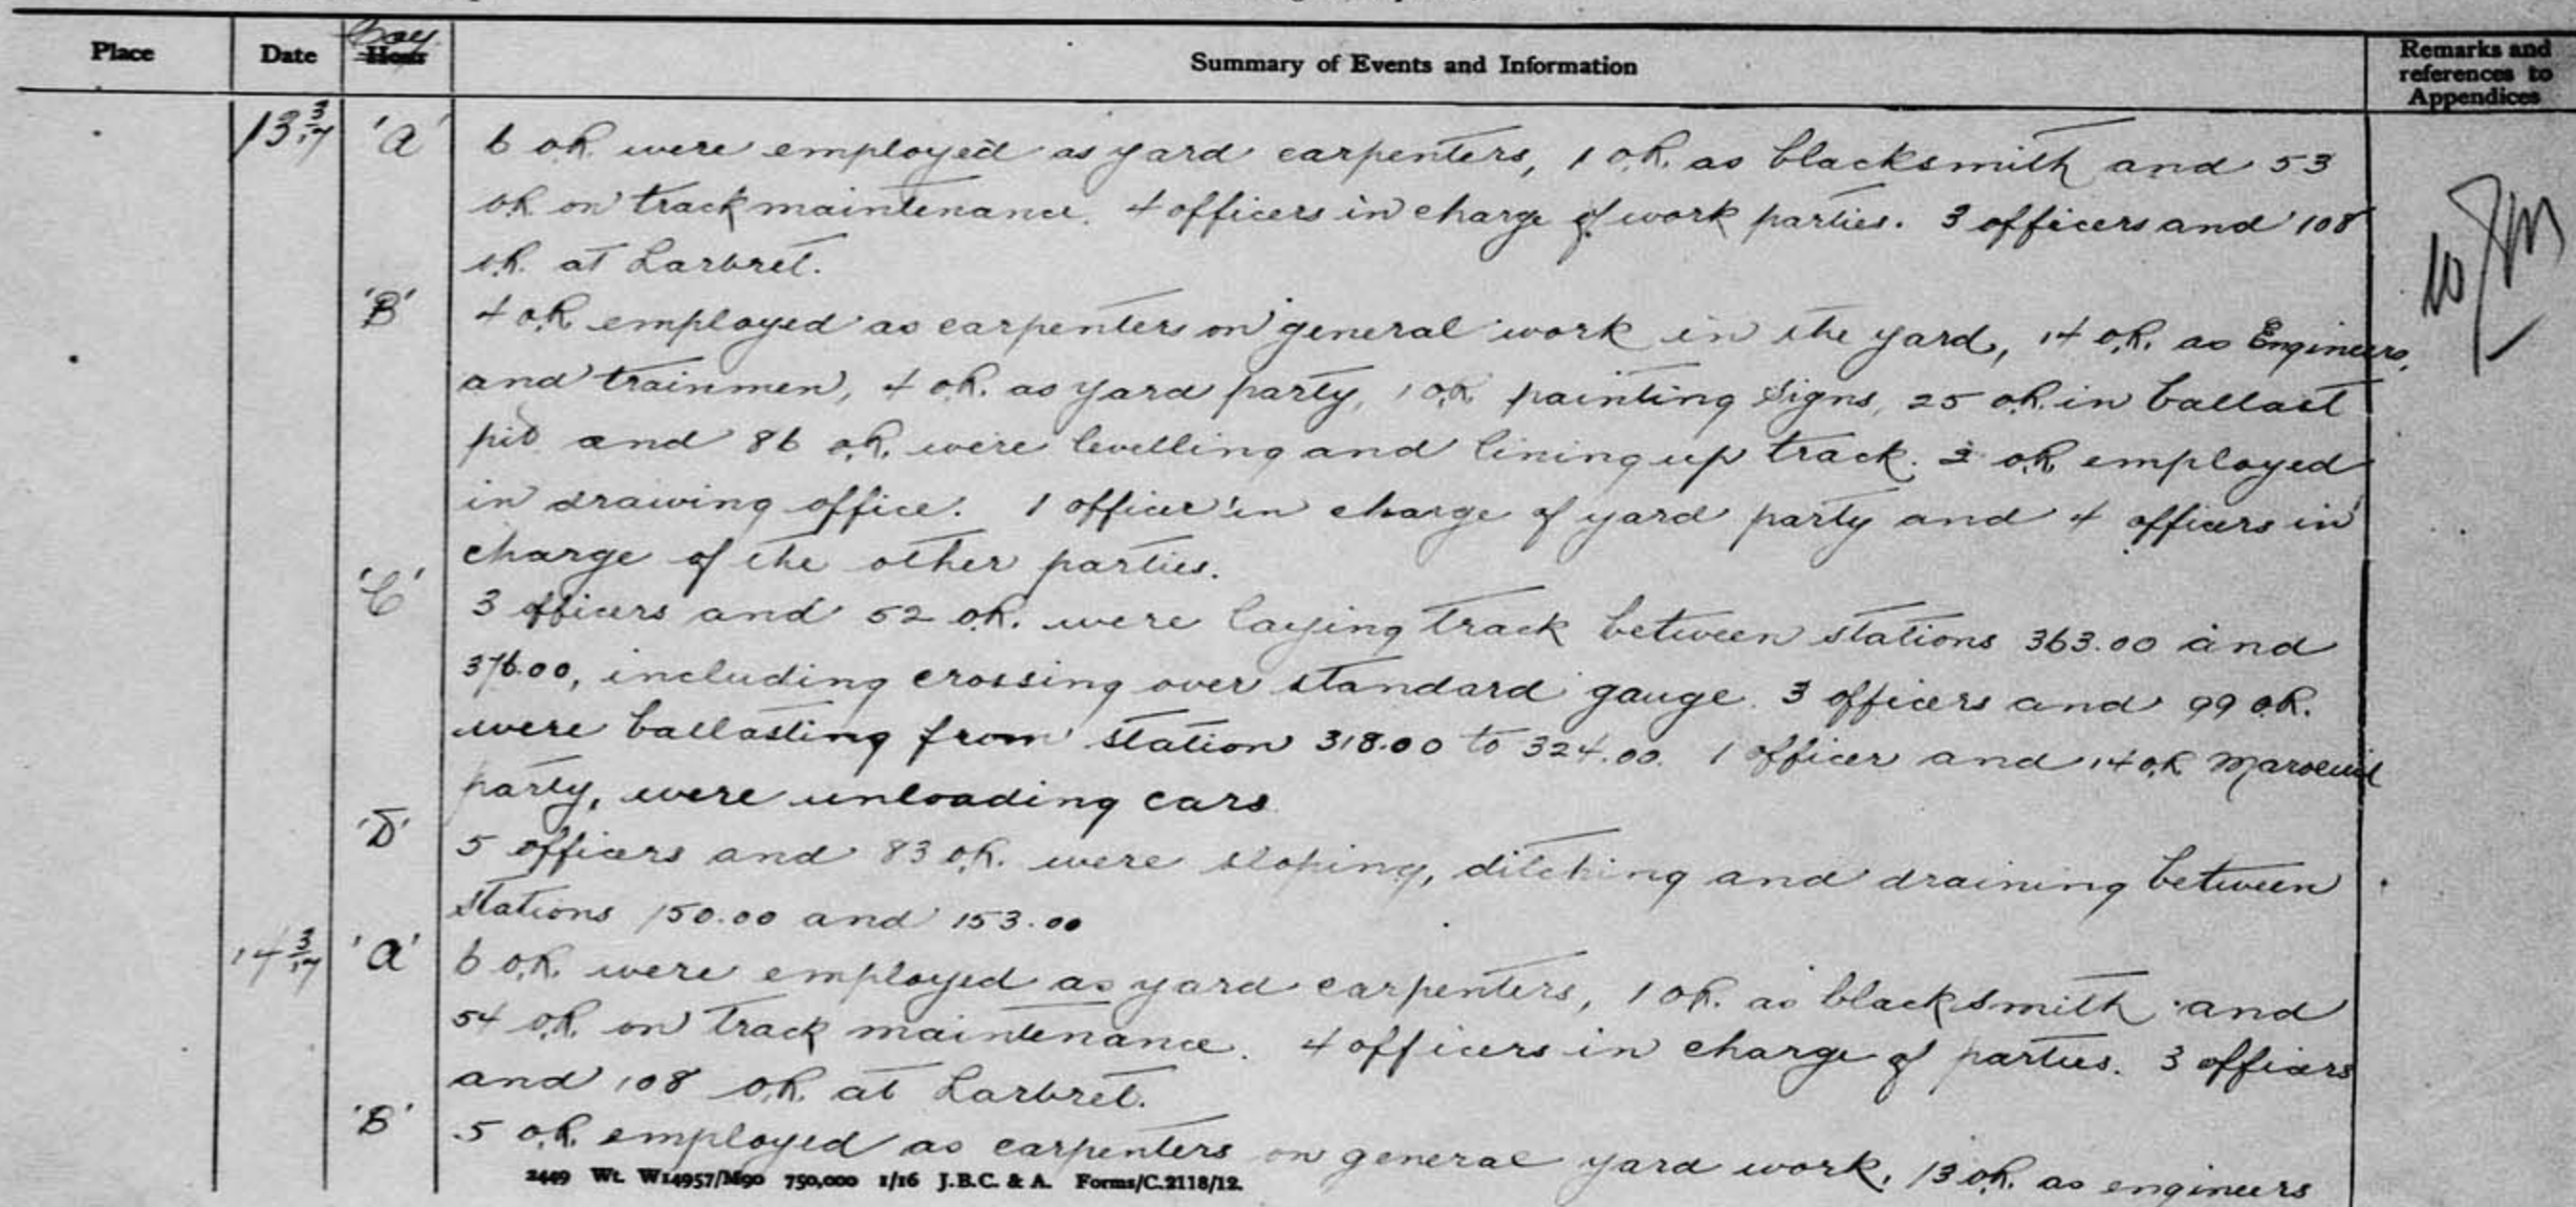 Place Date Hour Coy Summary of Events and Information Remarks and references to Appendices
13 3/17 'A' 6 O.R. were employed as yard carpenters, 1 O.R. as blacksmith and 53
O.R. on track maintenance. 4 officers in charge of work parties. 3 officers and 108
O.R. at Larbret.
'B' 4 O.R. employed as carpenters on general work in the yard, 14 O.R. as Engineers,
and trainmen, 4 O.R. as yard party, 1 O.R. painting signs, 25 O.R. in ballast
pit and 86 O.R. were levelling and lining up track. 2 O.R. employed
in drawing office. 1 officer in charge of yard party and 4 officers in
charge of the other parties.
'C' 3 officers and 52 O.R. were laying track between stations 363.00 and
376.00, including crossing over standard gauge. 3 officers and 99 O.R.
were ballasting from station 318.00 to 324.00. 1 officer and 14 O.R. Maroeuil
party, were unloading cars
'D' 5 officers and 83 O.R. were sloping, ditching and draining between
stations 150.00 and 153.00
14 3/17 'A' 6 O.R. were employed as yard carpenters, 1 O.R. as blacksmith and
54 O.R. on track maintenance. 4 officers in charge of parties. 3 officers
and 108 O.R. at Larbret.
'B' 5 O.R. employed as carpenters on general yard work, 13 O.R. as engineers
2449 Wt. W14957/M90 750,000 1/16 J.B.C. & A. Forms/C.2118/12.